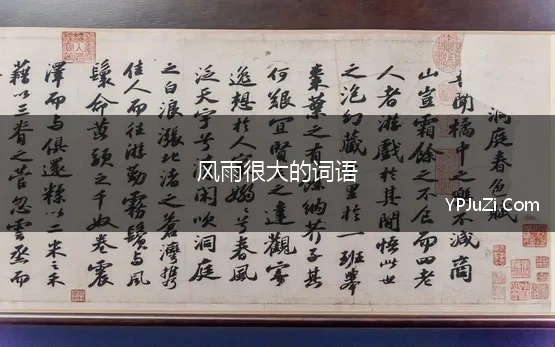 洞庭春色賦
聞橘中之樂不減商
山豈霜餘之不食而四老
人者游戲於其間悟此世
之泡幻藏里於一班舉
棗葉之有餘納芥子其
何艱宜賢之達觀寄
逸想於人嫋兮春風
泛天宇兮閑吹洞庭
之白浪漲北渚之蒼灣攜
佳人而往游勤霧鬢與風
鬟命黃頭之千奴卷震
澤而與俱還糅以二米之禾
藉以三脊之菅忽雲烝而
风雨很大的词语
YPJuZi.Com